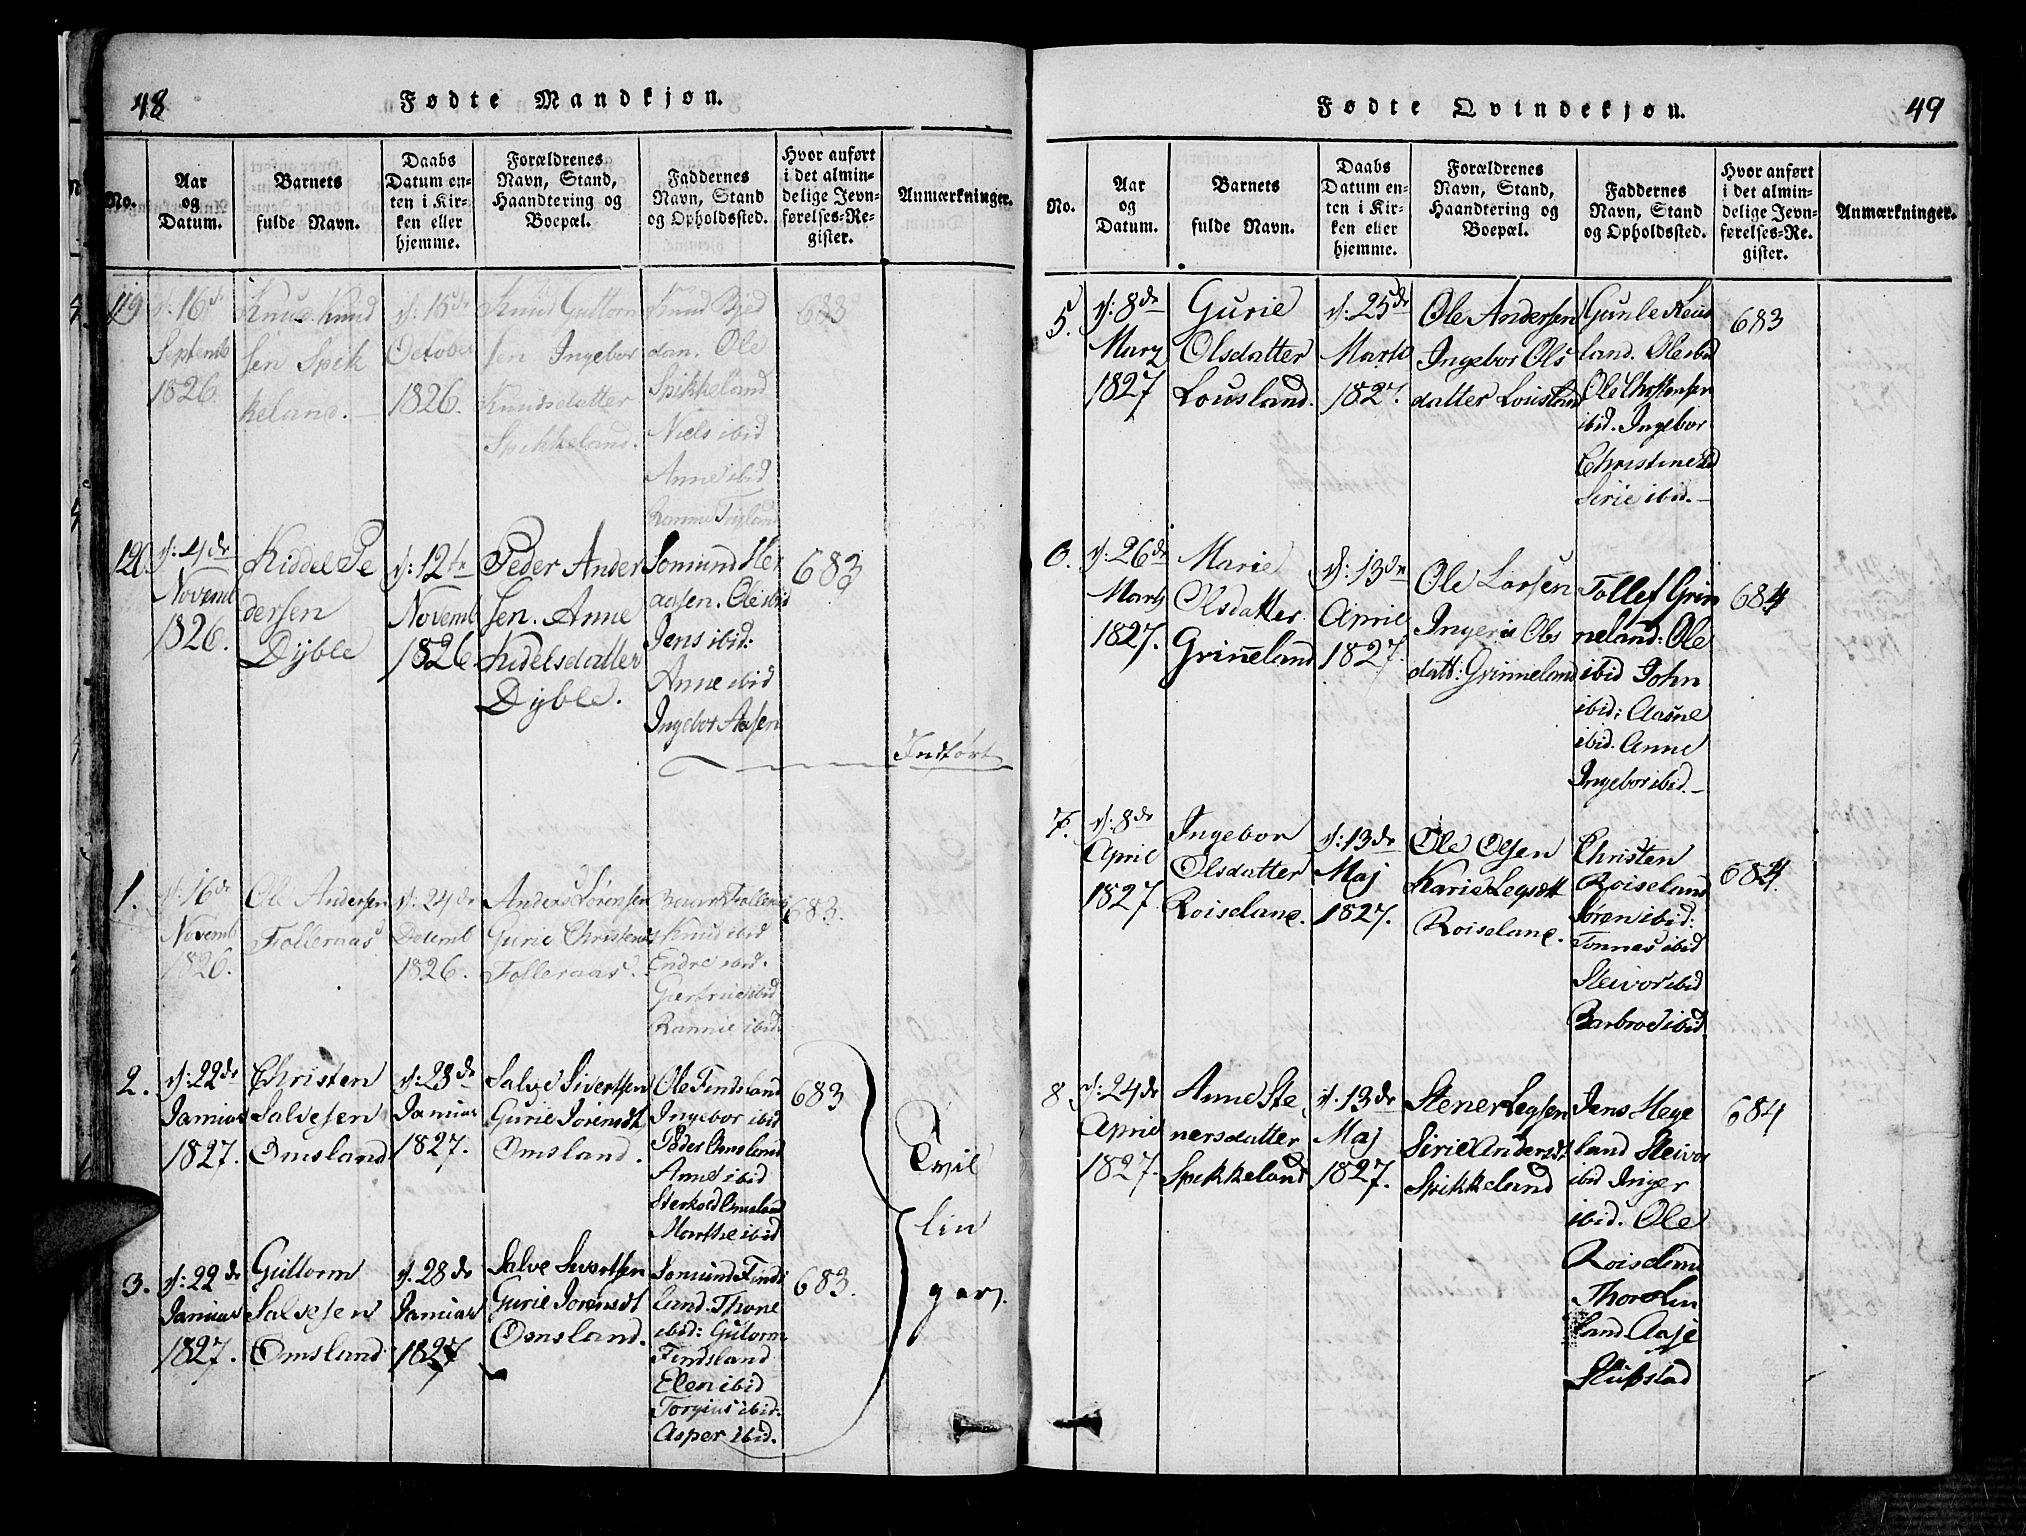 48
Fødte Mandkjøn.
No.
Aar
og
Datum.
Barnets
fulde Navn.
Daabs
Datum en-
ten i Kir-
ken eller
hjemme.
Forældrenes
Navn, Stand,
Haandtering og
Boepæl.
Faddernes
Navn, Stand
og Opholdssted.
Hvor anført
i det almin-
delige Jevn-
førelses-Re-
gister.
Anmærkninger.
119
d: 16de
Septemb
1826.
Knud Knud
sen Spik
keland.
d: 15de
October
1826.
Knud Guttorm
sen Ingebor
Knudsdatter
Spikkeland.
Knud
dan. Ole
Spikkeland
Niels ibid
Anne ibid
683
120
d: 4de
Novemb
1826.
Kiddel Pe
dersen
Dyble
d: 12te
Novemb
1826.
Peder Ander
sen. Anne
Kidelsdatter
Dyble.
Somund Her
aasen. Ole ibid
Jens ibid:
Anne ibid
Ingebor Aasen
683
Indført
1.
d: 16de
Novemb
1826.
Ole Andersen
Folleraas
d: 24de
Decemb
1826.
Anders Sørensen
Gurie Christensd
Folleraas.
Knud ibid
Endre ibid.
Gertrue ibid
Rannie ibid
683.
2.
d: 22de
Januar
1827.
Christen
Salvesen
Omsland
d: 28de
Januar
1827.
Salve Sivertsen
Gurie Sørensdt
Omsland.
Ole Findsland
Ingebor ibid
Peder Omsland
Anne ibid
Sterkold Omsland
Marthe ibid
683
Tvil
lin
ger.
3.
d: 22de
Januar
1827.
Guttorm
Salvesen
Omsland
d: 28de
Januar
1827
Salve Sivertsen
Gurie Sørensdt
Omsland.
Somund Finds
land. Thone
ibid: Gutorm
Findsland
Elen ibid
Torgius ibid:
Asper ibid.
683.
49
Fødte Qvindekjøn.
No.
Aar
og
Datum.
Barnets
fulde Navn.
Daabs
Datum en-
ten i Kir-
ken eller
hjemme.
Forældrenes
Navn, Stand,
Haandtering og
Boepæl.
Faddernes
Navn, Stand
og Opholdssted.
Hvor anført
i det almin-
delige Jevn-
førelses-Re-
gister.
Anmærkninger.
5.
d: 8de
Marz
1827
Gurie
Olsdatter
Lousland.
d: 25de
Marti
1827.
Ole Andersen
Ingebor Ols
datter Lousland
Gunle Reius
land. Ole ibid
Ole Thostensen
ibid. Ingebor
Christine ibid
Sirie ibid.
683
6.
d: 26de
Marts
1827.
Marie
Olsdatter
Grinneland
d: 13de
April
1827.
Ole Larsen
Ingeri Ols
datt: Grinneland
Tollef Grin
neland: Ole
ibid John
ibid: Aasne
ibid. Anne
Ingebor ibid.
684
7.
d: 8de
April
1827.
Ingebor
Olsdatter
Roiseland.
d: 13de
Maj
1827.
Ole Olsen
Karie Legsett
Roiseland.
Christen
Roiseland
Søren ibid:
Tønnas ibid
Steivor ibid
Barbroe ibid
684.
8.
d: 24de
April
1827.
Anne Ste
nersdatter
Spikkeland
d: 13de
Maj
1827.
Stener Legsen
Sirie Andersdt
Spikkeland
Jens Hege
land Steivor
ibid Inger
ibid. Ole
Roiseland
Thore Lin
land Aase
684